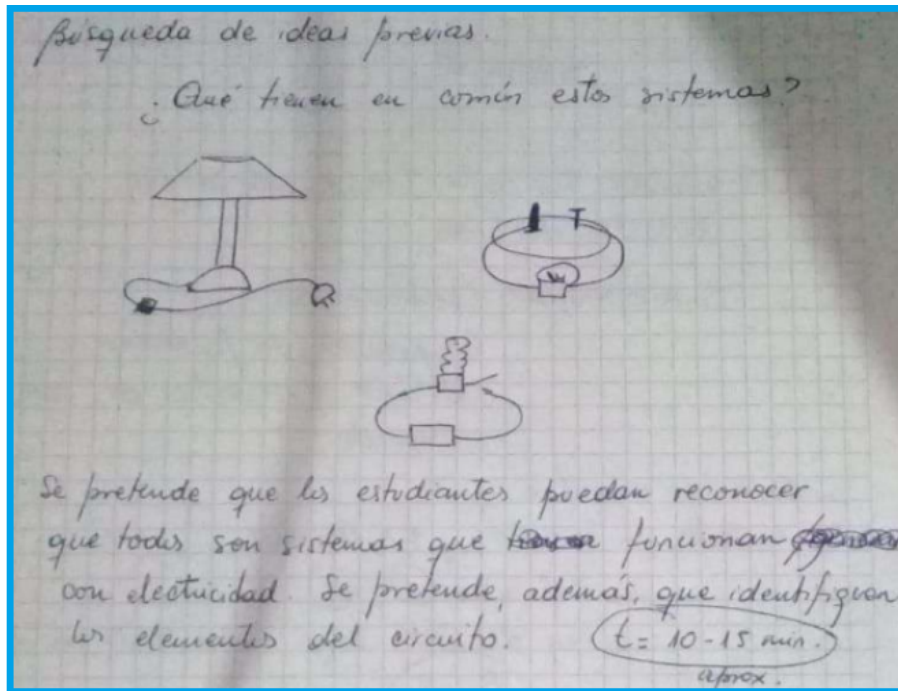 Búsqueda de ideas previas.
¿Qué tienen en común estos sistemas?
Se pretende que los estudiantes puedan reconocer
que todos son sistemas que funcionan
con electricidad. Se pretende, además, que identifiquen
los elementos del circuito. t = 10 - 15 min.
aprox.